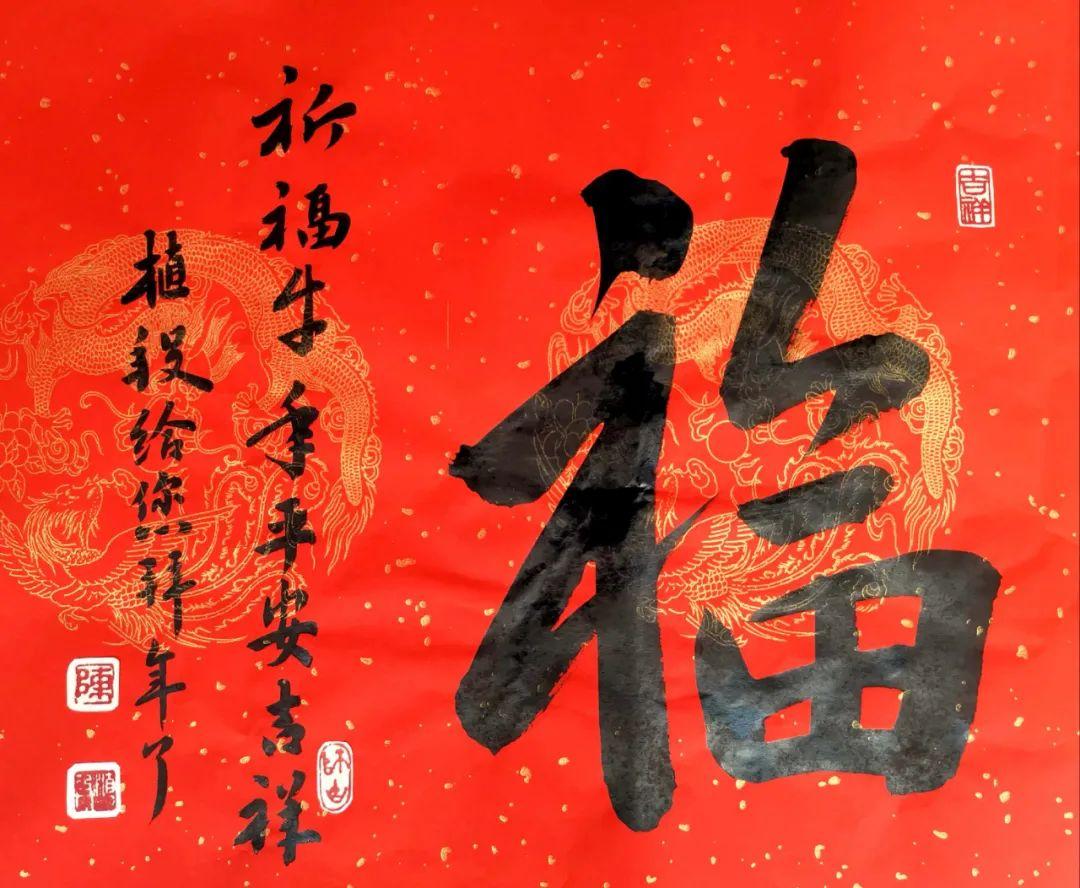 吉祥
福
祈福牛年平安吉祥
师古
植 给您拜年了
陳